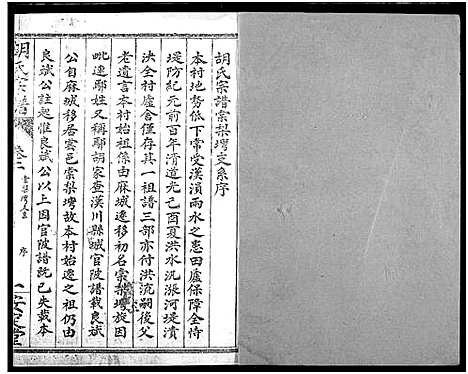 胡氏宗譜棠梨塆支系序
本村地势低下常受漢濆兩水之患田廬保障全恃
堤防紀元前百年清道光己酉夏洪水汎漲河堤潰
決全村廬舍僅存其一祖譜三部亦付洪流嗣後父
老遺言本村始祖係由麻城遷移初名棠梨塆旋因
毗連鄢姓又稱鄢胡家查漢川縣城官陂譜載良斌
公自麻城移居雲邑棠梨塆故本村始遷之祖仍由
良斌公註起惟良斌公以上因官陂譜既已失載本
胡氏宗譜
卷二
棠梨塆支
序
一
安定堂